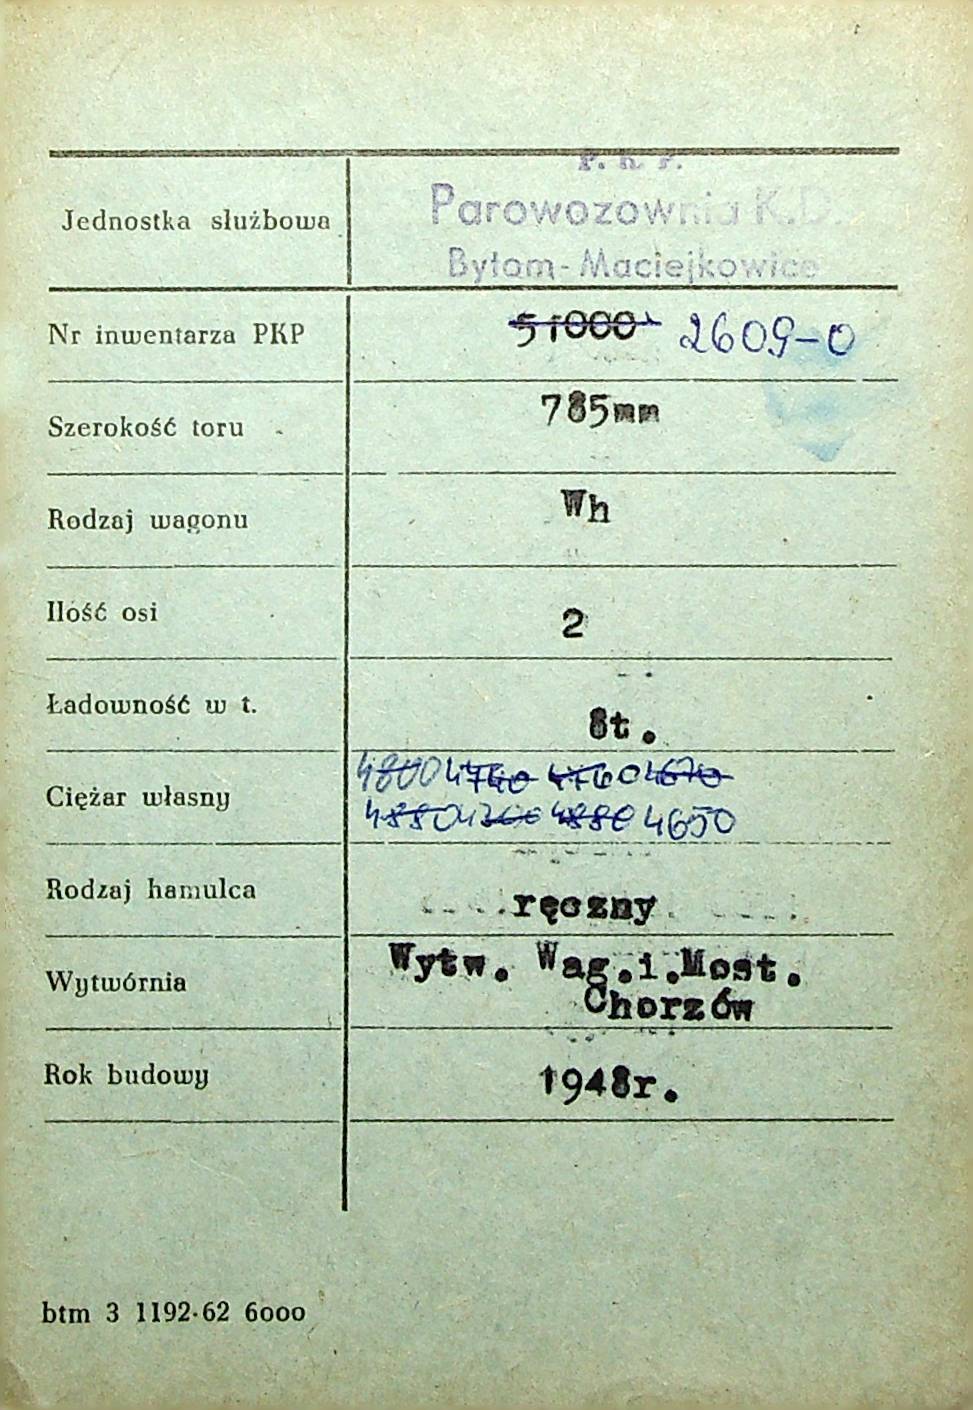 P. K. P.
Parowozownia K.D.
Jednostka służbowa
Bytom-Maciejkowice
Nr inwentarza PKP 51000 2609-0
Szerokość toru 785mm
Rodzaj wagonu Wh
Ilość osi 2
Ładowność w t. 8t.
4800 4740 4760 4670
Ciężar własny
4880 4880 4650
Rodzaj hamulca ręczny
Wytw. Wag.i.Most.
Wytwórnia
Chorzów
Rok budowy 1948r.
btm 3 1192·62 6000